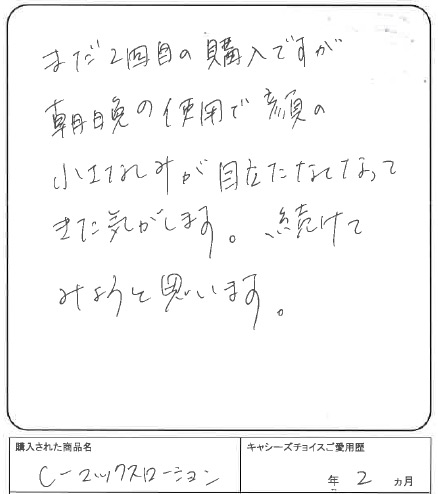 まだ2回目の購入ですが
朝晩の使用で顔の
小さなしみが目立たなくなって
きた気がします。続けて
みようと思います。
購入された商品名
C-マックスローション
キャシーズチョイスご愛用歴
年 2 カ月